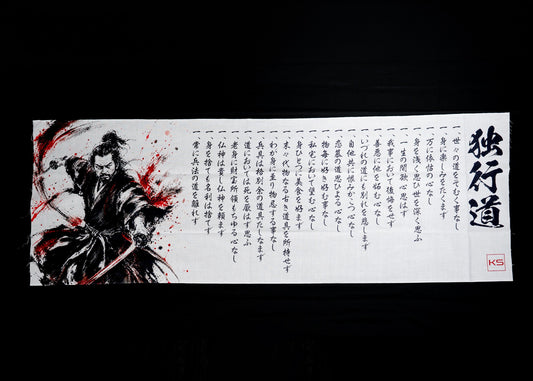 独行道
一、世々の道をそむく事なし
一、身に楽しみをたくます
一、万に依怙の心なし
一、身を浅く思ひ世を深く思ふ
一、一生の間欲心思はす
一、我事において後悔をせす
一、善悪に他を妬む心なし
一、いつれの道にも別れを悲します
一、自他共に恨みかこつ心なし
一、恋慕の道思ひよる心なし
一、物毎に好き好む事なし
一、私宅において望む心なし
一、身ひとつに美食を好ます
一、末々代物なる古き道具を所持せす
一、わか身に至り物忌する事なし
一、兵具は格別余の道具たしなます
一、道においては死を厭はす思ふ
一、老身に財宝所領もちゆる心なし
一、仏神は貴し仏神を頼ます
一、身を捨ても名利は捨てす
一、常に兵法の道を離れす
KS